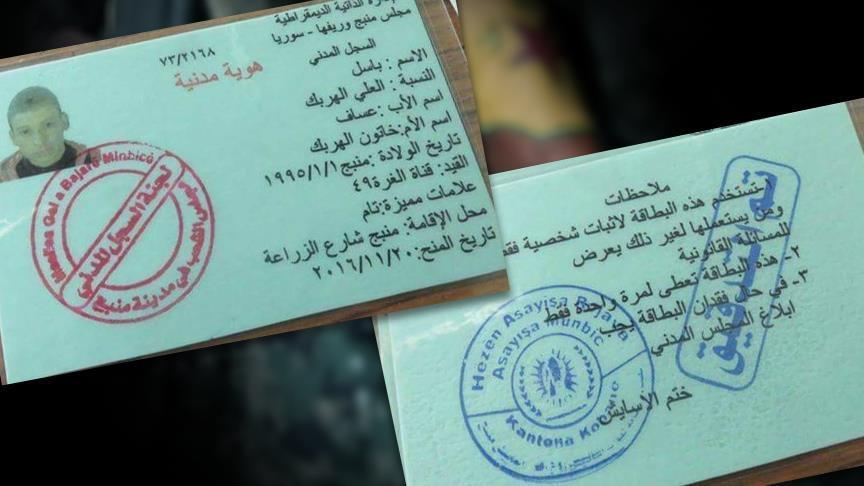 الإدارة الذاتية الديمقراطية
مجلس منبج وريفها - سوريا
السجل المدني
٧٣/٢١٦٨
هوية مدنية
الاسم : باسل
النسبة : العلي الهربك
اسم الأب : عساف
اسم الأم:خاتون الهربك
تاريخ الولادة :منبج١٩٩٥/١/١
القيد: قناة الغرة٤٩
علامات مميزة:تام
محل الإقامة: منبج شارع الزراعة
تاريخ المنح: ٢٠١٦/١١/٢٠
Bajarê Minbicê
لجنة السجل المدني
في مدينة منبج
ملاحظات
١-تستخدم هذه البطاقة لاثبات شخصية فقط
ومن يستعملها لغير ذلك يعرض
للمسائلة القانونية
٢- هذه البطاقة تعطى لمرة واحدة فقط
٣- في حال فقدان البطاقة يجب
ابلاغ المجلس المدني
ختم الأسايش
تم التدقيق
Hezen Asayişa Bajarê
Asayişa Munbic
Kantona